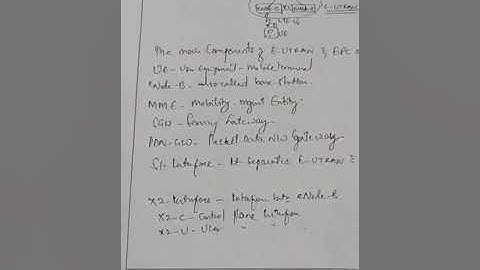 E-UTRAN
UE
The main Components of E-UTRAN & EPC
UE - User Equipment - Mobile terminal
eNode-B - also called base station
MME - Mobility mgmt Entity.
SGW - Serving Gateway -
PDN-GW - Packet Data N/W Gateway -
S1-Interface - It separates E-UTRAN &
X2-Interface - Interface betn eNode-B.
X2-C - Control Plane Interface
X2-U - User " "